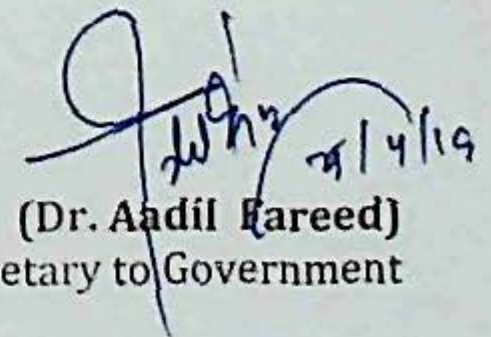 4/19
(Dr. Aadil Fareed)
etary to Government